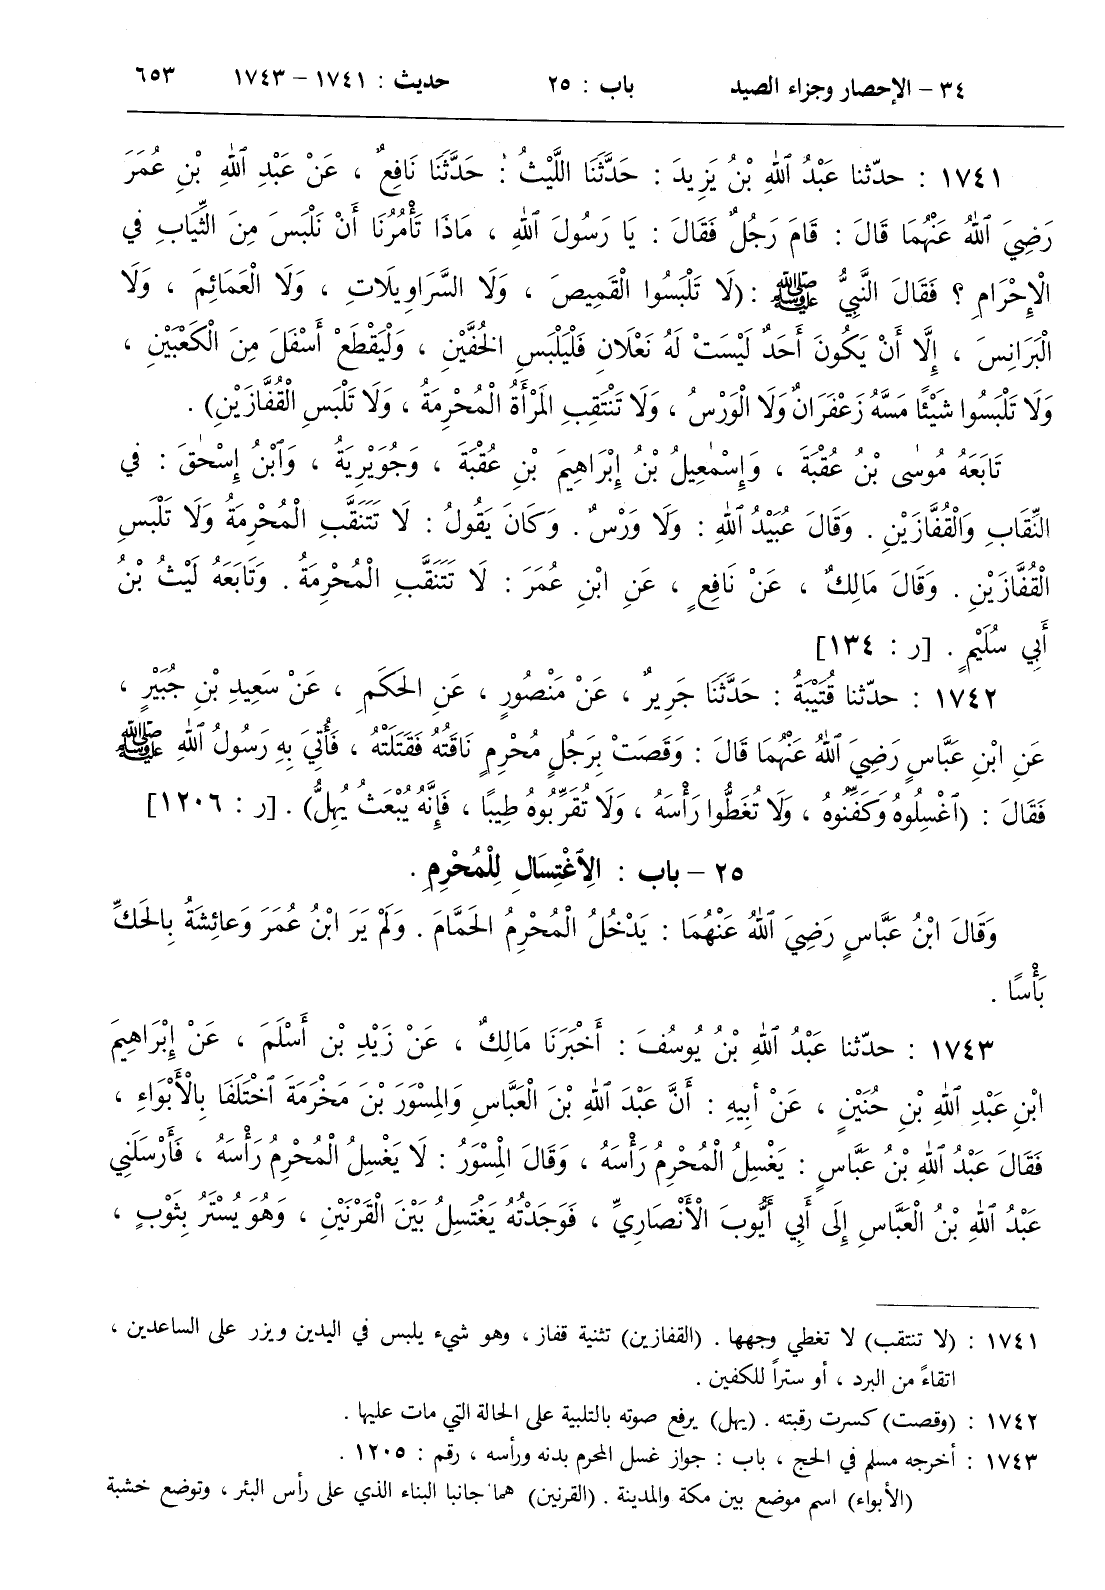 ٣٤ – الإحصار وجزاء الصيد باب : ٢٥ حديث : ١٧٤١ – ١٧٤٣ ٦٥٣
١٧٤١ : حدّثنا عَبْدُ ٱللهِ بْنُ يَزِيدَ : حَدَّثَنَا اللَّيْثُ : حَدَّثَنَا نَافِعٌ ، عَنْ عَبْدِ ٱللهِ بْنِ عُمَرَ
رَضِيَ ٱللهُ عَنْهُمَا قَالَ : قَامَ رَجُلٌ فَقَالَ : يَا رَسُولَ ٱللهِ ، مَاذَا تَأْمُرُنَا أَنْ نَلْبَسَ مِنَ الثِّيَابِ في
الْإِحْرَامِ ؟ فَقَالَ النَّبِيُّ ﷺ : (لَا تَلْبَسُوا الْقَمِيصَ ، وَلَا السَّرَاوِيلَاتِ ، وَلَا الْعَمَائِمَ ، وَلَا
الْبَرَانِسَ ، إِلَّا أَنْ يَكُونَ أَحَدٌ لَيْسَتْ لَهُ نَعْلَانِ فَلْيَلْبَسِ الخُفَّيْنِ ، وَلْيَقْطَعْ أَسْفَلَ مِنَ الْكَعْبَيْنِ ،
وَلَا تَلْبَسُوا شَيْئًا مَسَّهُ زَعْفَرَانٌ وَلَا الْوَرْسُ ، وَلَا تَنْتَقِبِ المَرْأَةُ الْمُحْرِمَةُ ، وَلَا تَلْبَسِ الْقُفَّازَيْنِ) .
تَابَعَهُ مُوسٰى بْنُ عُقْبَةَ ، وَإِسْمٰعِيلُ بْنُ إِبْرَاهِيمَ بْنِ عُقْبَةَ ، وَجُوَيْرِيَةُ ، وَٱبْنُ إِسْحٰقَ : في
النِّقَابِ وَالْقُفَّازَيْنِ . وَقَالَ عُبَيْدُ ٱللهِ : وَلَا وَرْسٌ . وَكَانَ يَقُولُ : لَا تَتَنَقَّبِ الْمُحْرِمَةُ وَلَا تَلْبَسِ
الْقُفَّازَيْنِ . وَقَالَ مَالِكٌ ، عَنْ نَافِعٍ ، عَنِ ابْنِ عُمَرَ : لَا تَتَنَقَّبِ الْمُحْرِمَةُ . وَتَابَعَهُ لَيْثُ بْنُ
أَبِي سُلَيْمٍ . [ر : ١٣٤]
١٧٤٢ : حدّثنا قُتَيْبَةُ : حَدَّثَنَا جَرِيرٌ ، عَنْ مَنْصُورٍ ، عَنِ الحَكَمِ ، عَنْ سَعِيدِ بْنِ جُبَيْرٍ ،
عَنِ ابْنِ عَبَّاسٍ رَضِيَ ٱللهُ عَنْهُمَا قَالَ : وَقَصَتْ بِرَجُلٍ مُحْرِمٍ نَاقَتُهُ فَقَتَلَتْهُ ، فَأُتِيَ بِهِ رَسُولُ ٱللهِ ﷺ
فَقَالَ : (ٱغْسِلُوهُ وَكَفِّنُوهُ ، وَلَا تُغَطُّوا رَأْسَهُ ، وَلَا تُقَرِّبُوهُ طِيبًا ، فَإِنَّهُ يُبْعَثُ يُهِلُّ) . [ر : ١٢٠٦]
٢٥ – باب : الِاغْتِسَالِ لِلْمُحْرِمِ .
وَقَالَ ابْنُ عَبَّاسٍ رَضِيَ ٱللهُ عَنْهُمَا : يَدْخُلُ الْمُحْرِمُ الحَمَّامَ . وَلَمْ يَرَ ابْنُ عُمَرَ وَعائِشَةُ بِالحَكِّ
بَأْسًا .
١٧٤٣ : حدّثنا عَبْدُ ٱللهِ بْنُ يُوسُفَ : أَخْبَرَنَا مَالِكٌ ، عَنْ زَيْدِ بْنِ أَسْلَمَ ، عَنْ إِبْرَاهِيمَ
ابْنِ عَبْدِ ٱللهِ بْنِ حُنَيْنٍ ، عَنْ أَبِيهِ : أَنَّ عَبْدَ ٱللهِ بْنَ الْعَبَّاسِ وَالمِسْوَرَ بْنَ مَخْرَمَةَ ٱخْتَلَفَا بِالْأَبْوَاءِ ،
فَقَالَ عَبْدُ ٱللهِ بْنُ عَبَّاسٍ : يَغْسِلُ الْمُحْرِمُ رَأْسَهُ ، وَقَالَ المِسْوَرُ : لَا يَغْسِلُ الْمُحْرِمُ رَأْسَهُ ، فَأَرْسَلَنِي
عَبْدُ ٱللهِ بْنُ الْعَبَّاسِ إِلَى أَبِي أَيُّوبَ الْأَنْصَارِيِّ ، فَوَجَدْتُهُ يَغْتَسِلُ بَيْنَ الْقَرْنَيْنِ ، وَهُوَ يُسْتَرُ بِثَوْبٍ ،
١٧٤١ : (لا تنتقب) لا تغطي وجهها . (القفازين) تثنية قفاز ، وهو شيء يلبس في اليدين ويزر على الساعدين ،
اتقاءً من البرد ، أو ستراً للكفين .
١٧٤٢ : (وقصت) كسرت رقبته . (يهل) يرفع صوته بالتلبية على الحالة التي مات عليها .
١٧٤٣ : أخرجه مسلم في الحج ، باب : جواز غسل المحرم بدنه ورأسه ، رقم : ١٢٠٥ .
(الأبواء) اسم موضع بين مكة والمدينة . (القرنين) هما جانبا البناء الذي على رأس البئر ، وتوضع خشبة